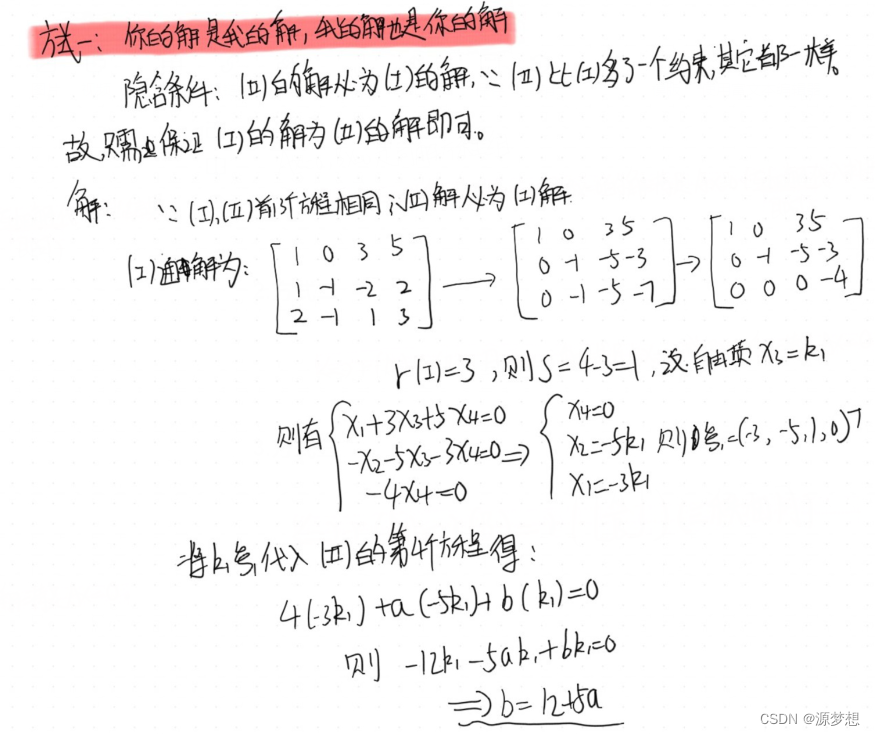 方式一：你的解是我的解，我的解也是你的解
隐含条件：(II)的解必为(I)的解，∵(II)比(I)多了一个约束，其它都一样。
故，只需保证(I)的解为(II)的解即可。
解：∵(I),(II)前3个方程相同∴(II)解必为(I)解
(I)通解为：[1 0 3 5
1 -1 -2 2
2 -1 1 3] → [1 0 3 5
0 -1 -5 -3
0 -1 -5 -7] → [1 0 3 5
0 -1 -5 -3
0 0 0 -4]
r(I)=3，则S=4-3=1，设自由项 x₃=k₁
则有 {x₁+3x₃+5x₄=0
-x₂-5x₃-3x₄=0
-4x₄=0 ⇒ {x₄=0
x₂=-5k₁
x₁=-3k₁ 则ξ₁=(-3, -5, 1, 0)ᵀ
将k₁ξ₁代入(II)的第4个方程得：
4(-3k₁)+a(-5k₁)+b(k₁)=0
则 -12k₁-5ak₁+bk₁=0
⇒b=12+5a
CSDN @源梦想